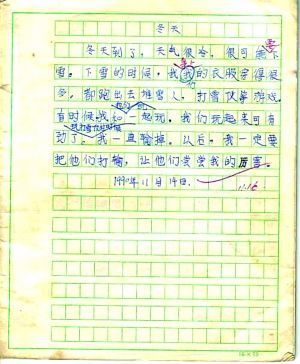 冬天
冬天到了，天气很冷，很可能下
雪。下雪的时候，我的衣服穿得很
多，都跑出去堆雪人，打雪仗等游戏。
有时候我如一起玩。我们玩起来可有
劲了。我一直输掉。以后，我一定要
把他们打输，让他们尝尝我的厉害。
1990年11月19日.